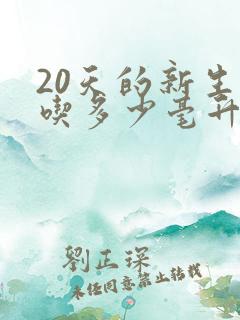 20天的新生
喫多少毫升
劉正琛
未经同意禁止转载